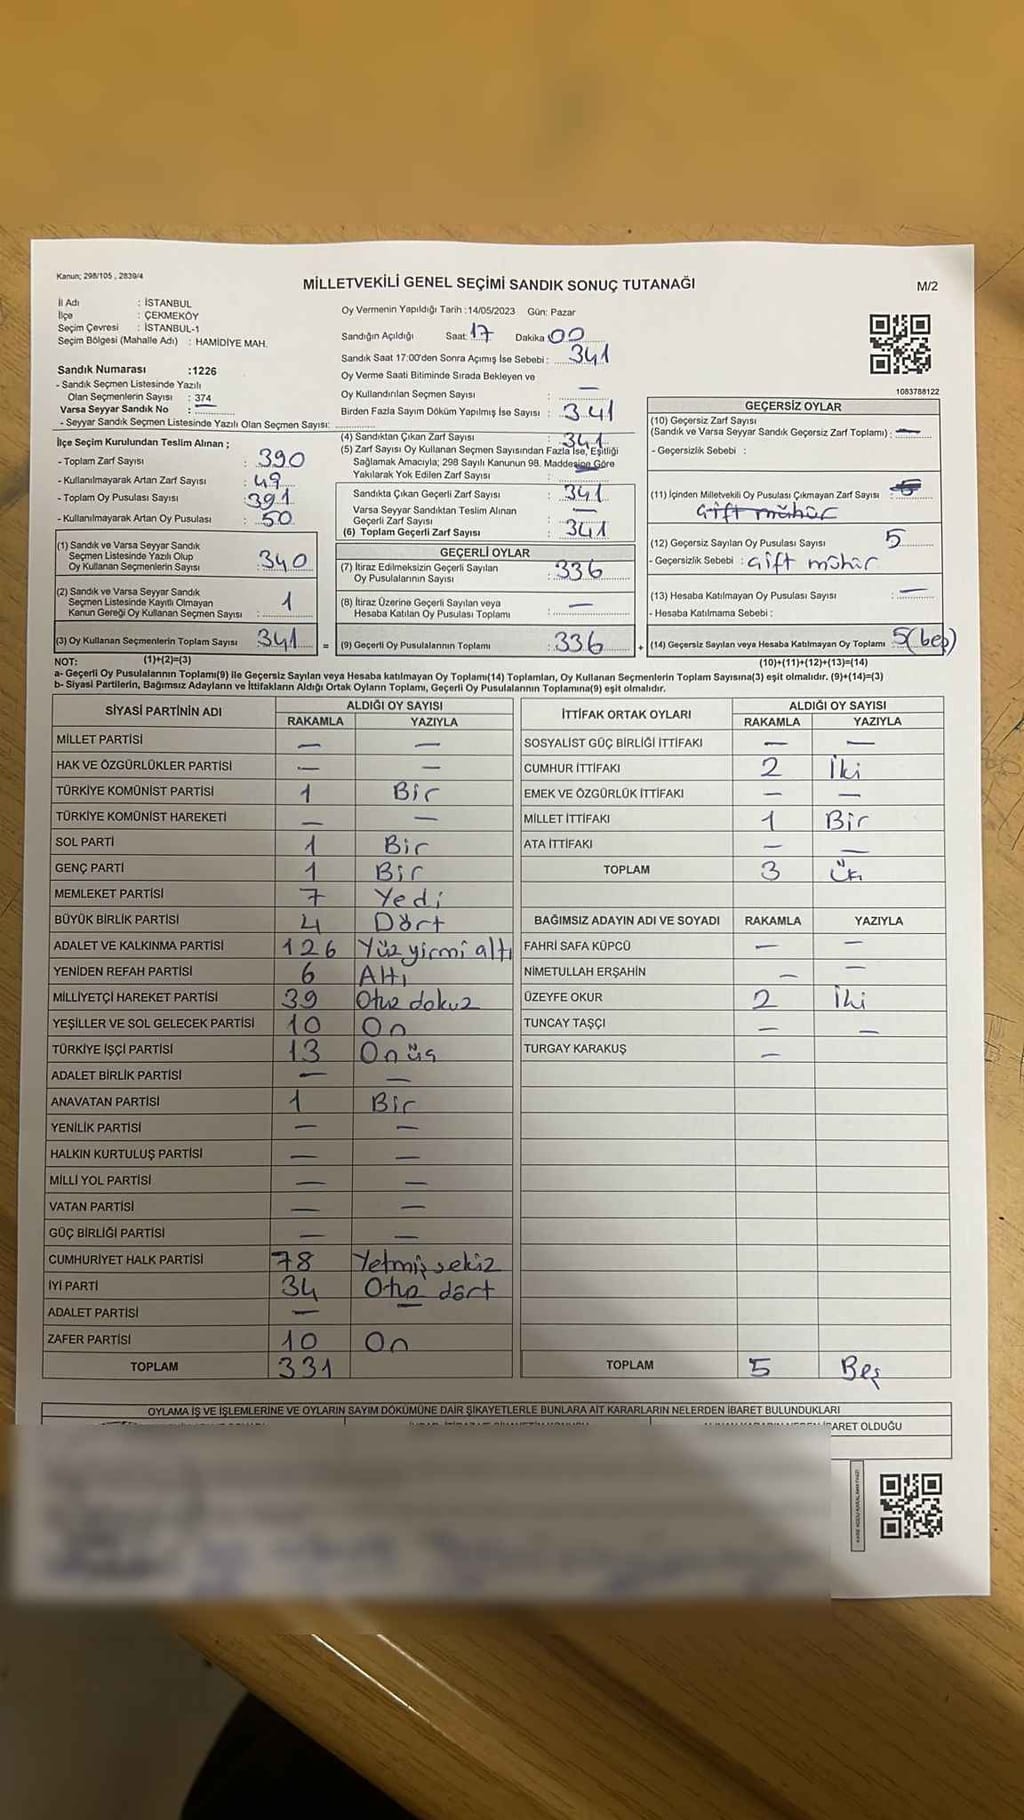 Kanun; 298/105 , 2839/4
MİLLETVEKİLİ GENEL SEÇİMİ SANDIK SONUÇ TUTANAĞI
M/2
İl Adı : İSTANBUL
İlçe : ÇEKMEKÖY
Seçim Çevresi : İSTANBUL-1
Seçim Bölgesi (Mahalle Adı) : HAMİDİYE MAH.
Sandık Numarası :1226
- Sandık Seçmen Listesinde Yazılı
Olan Seçmenlerin Sayısı : 374
Varsa Seyyar Sandık No : —
- Seyyar Sandık Seçmen Listesinde Yazılı Olan Seçmen Sayısı:
Oy Vermenin Yapıldığı Tarih :14/05/2023 Gün: Pazar
Sandığın Açıldığı Saat: 17 Dakika: 00
Sandık Saat 17:00'den Sonra Açımış İse Sebebi : 341
Oy Verme Saati Bitiminde Sırada Bekleyen ve
Oy Kullandırılan Seçmen Sayısı : —
Birden Fazla Sayım Döküm Yapılmış İse Sayısı : 341
1083788122
İlçe Seçim Kurulundan Teslim Alınan ;
- Toplam Zarf Sayısı : 390
- Kullanılmayarak Artan Zarf Sayısı : 49
- Toplam Oy Pusulası Sayısı : 391
- Kullanılmayarak Artan Oy Pusulası : 50
(1) Sandık ve Varsa Seyyar Sandık
Seçmen Listesinde Yazılı Olup
Oy Kullanan Seçmenlerin Sayısı : 340
(2) Sandık ve Varsa Seyyar Sandık
Seçmen Listesinde Kayıtlı Olmayan
Kanun Gereği Oy Kullanan Seçmen Sayısı : 1
(3) Oy Kullanan Seçmenlerin Toplam Sayısı : 341 =
(4) Sandıktan Çıkan Zarf Sayısı : 341
(5) Zarf Sayısı Oy Kullanan Seçmen Sayısından Fazla İse, Eşitliği
Sağlamak Amacıyla; 298 Sayılı Kanunun 98. Maddesine Göre
Yakılarak Yok Edilen Zarf Sayısı : —
Sandıkta Çıkan Geçerli Zarf Sayısı : 341
Varsa Seyyar Sandıktan Teslim Alınan
Geçerli Zarf Sayısı : —
(6) Toplam Geçerli Zarf Sayısı : 341
GEÇERLİ OYLAR
(7) İtiraz Edilmeksizin Geçerli Sayılan
Oy Pusulalarının Sayısı : 336
(8) İtiraz Üzerine Geçerli Sayılan veya
Hesaba Katılan Oy Pusulası Toplamı : —
(9) Geçerli Oy Pusulalarının Toplamı : 336 +
GEÇERSİZ OYLAR
(10) Geçersiz Zarf Sayısı
(Sandık ve Varsa Seyyar Sandık Geçersiz Zarf Toplamı) : —
- Geçersizlik Sebebi :
(11) İçinden Milletvekili Oy Pusulası Çıkmayan Zarf Sayısı :
Çift mühür
(12) Geçersiz Sayılan Oy Pusulası Sayısı 5
- Geçersizlik Sebebi : Çift mühür
(13) Hesaba Katılmayan Oy Pusulası Sayısı : —
- Hesaba Katılmama Sebebi :
(14) Geçersiz Sayılan veya Hesaba Katılmayan Oy Toplamı 5 (beş)
NOT: (1)+(2)=(3) (10)+(11)+(12)+(13)=(14)
a- Geçerli Oy Pusulalarının Toplamı(9) ile Geçersiz Sayılan veya Hesaba katılmayan Oy Toplamı(14) Toplamları, Oy Kullanan Seçmenlerin Toplam Sayısına(3) eşit olmalıdır. (9)+(14)=(3)
b- Siyasi Partilerin, Bağımsız Adayların ve İttifakların Aldığı Ortak Oyların Toplamı, Geçerli Oy Pusulalarının Toplamına(9) eşit olmalıdır.
SİYASİ PARTİNİN ADI ALDIĞI OY SAYISI
RAKAMLA YAZIYLA
MİLLET PARTİSİ — —
HAK VE ÖZGÜRLÜKLER PARTİSİ — —
TÜRKİYE KOMÜNİST PARTİSİ 1 Bir
TÜRKİYE KOMÜNİST HAREKETİ — —
SOL PARTİ 1 Bir
GENÇ PARTİ 1 Bir
MEMLEKET PARTİSİ 7 Yedi
BÜYÜK BİRLİK PARTİSİ 4 Dört
ADALET VE KALKINMA PARTİSİ 126 Yüz yirmi altı
YENİDEN REFAH PARTİSİ 6 Altı
MİLLİYETÇİ HAREKET PARTİSİ 39 Otuz dokuz
YEŞİLLER VE SOL GELECEK PARTİSİ 10 On
TÜRKİYE İŞÇİ PARTİSİ 13 Onüç
ADALET BİRLİK PARTİSİ — —
ANAVATAN PARTİSİ 1 Bir
YENİLİK PARTİSİ — —
HALKIN KURTULUŞ PARTİSİ — —
MİLLİ YOL PARTİSİ — —
VATAN PARTİSİ — —
GÜÇ BİRLİĞİ PARTİSİ — —
CUMHURİYET HALK PARTİSİ 78 Yetmiş sekiz
İYİ PARTİ 34 Otuz dört
ADALET PARTİSİ — —
ZAFER PARTİSİ 10 On
TOPLAM 331
İTTİFAK ORTAK OYLARI ALDIĞI OY SAYISI
RAKAMLA YAZIYLA
SOSYALİST GÜÇ BİRLİĞİ İTTİFAKI — —
CUMHUR İTTİFAKI 2 İki
EMEK VE ÖZGÜRLÜK İTTİFAKI — —
MİLLET İTTİFAKI 1 Bir
ATA İTTİFAKI — —
TOPLAM 3
BAĞIMSIZ ADAYIN ADI VE SOYADI RAKAMLA YAZIYLA
FAHRİ SAFA KÜPCÜ — —
NİMETULLAH ERŞAHİN — —
ÜZEYFE OKUR 2 İki
TUNCAY TAŞÇI — —
TURGAY KARAKUŞ —
TOPLAM 5 Beş
OYLAMA İŞ VE İŞLEMLERİNE VE OYLARIN SAYIM DÖKÜMÜNE DAİR ŞİKAYETLERLE BUNLARA AİT KARARLARIN NELERDEN İBARET BULUNDUKLARI
İBARET OLDUĞU